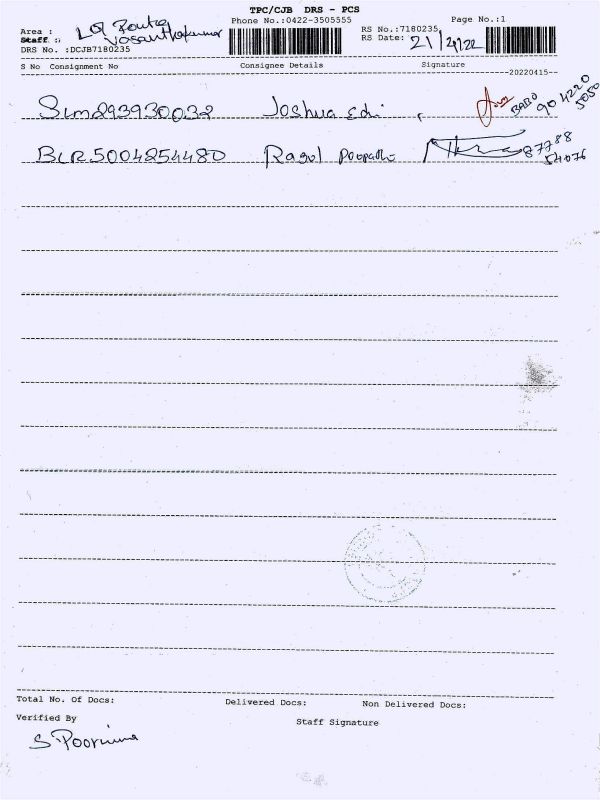 TPC/CJB DRS - PCS
Phone No.:0422-3505555 Page No.:1
Area : L01 Route
Staff : Vasanthakumar
RS No.:7180235
RS Date: 21/4/22
DRS No. :DCJB7180235
S No Consignment No Consignee Details Signature
20220415
SLM293930032 Joshua Edi BABO 90 4220 5050
BLR5004254480 Ragul Poopathi 87788 54076
Total No. Of Docs: Delivered Docs: Non Delivered Docs:
Verified By Staff Signature
S Poornima